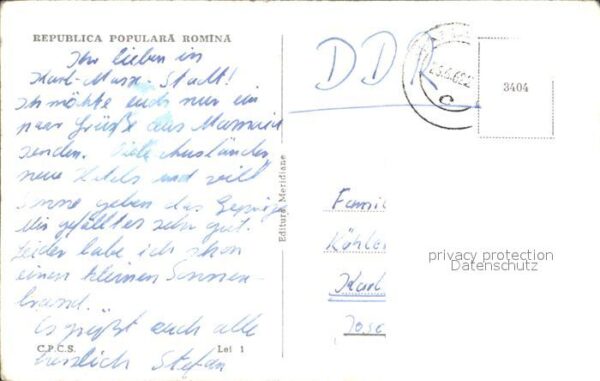 REPUBLICA POPULARĂ ROMÎNĂ
Ihr lieben in
Karl-Marx-Stadt!
Ich möchte euch nur ein
paar Grüße aus Mamaia
senden. Viele Ausländer,
neue Hotels und viel
Sonne geben das Gepräge
Mir gefällt es sehr gut.
Leider habe ich schon
einen kleinen Sonnen-
brand.
Es grüßt euch alle
herzlich Stefan
C.P.C.S. Lei 1
Editura Meridiane
DDR
3404
Famil
Köhler
Karl
Jose
privacy protection
Datenschutz